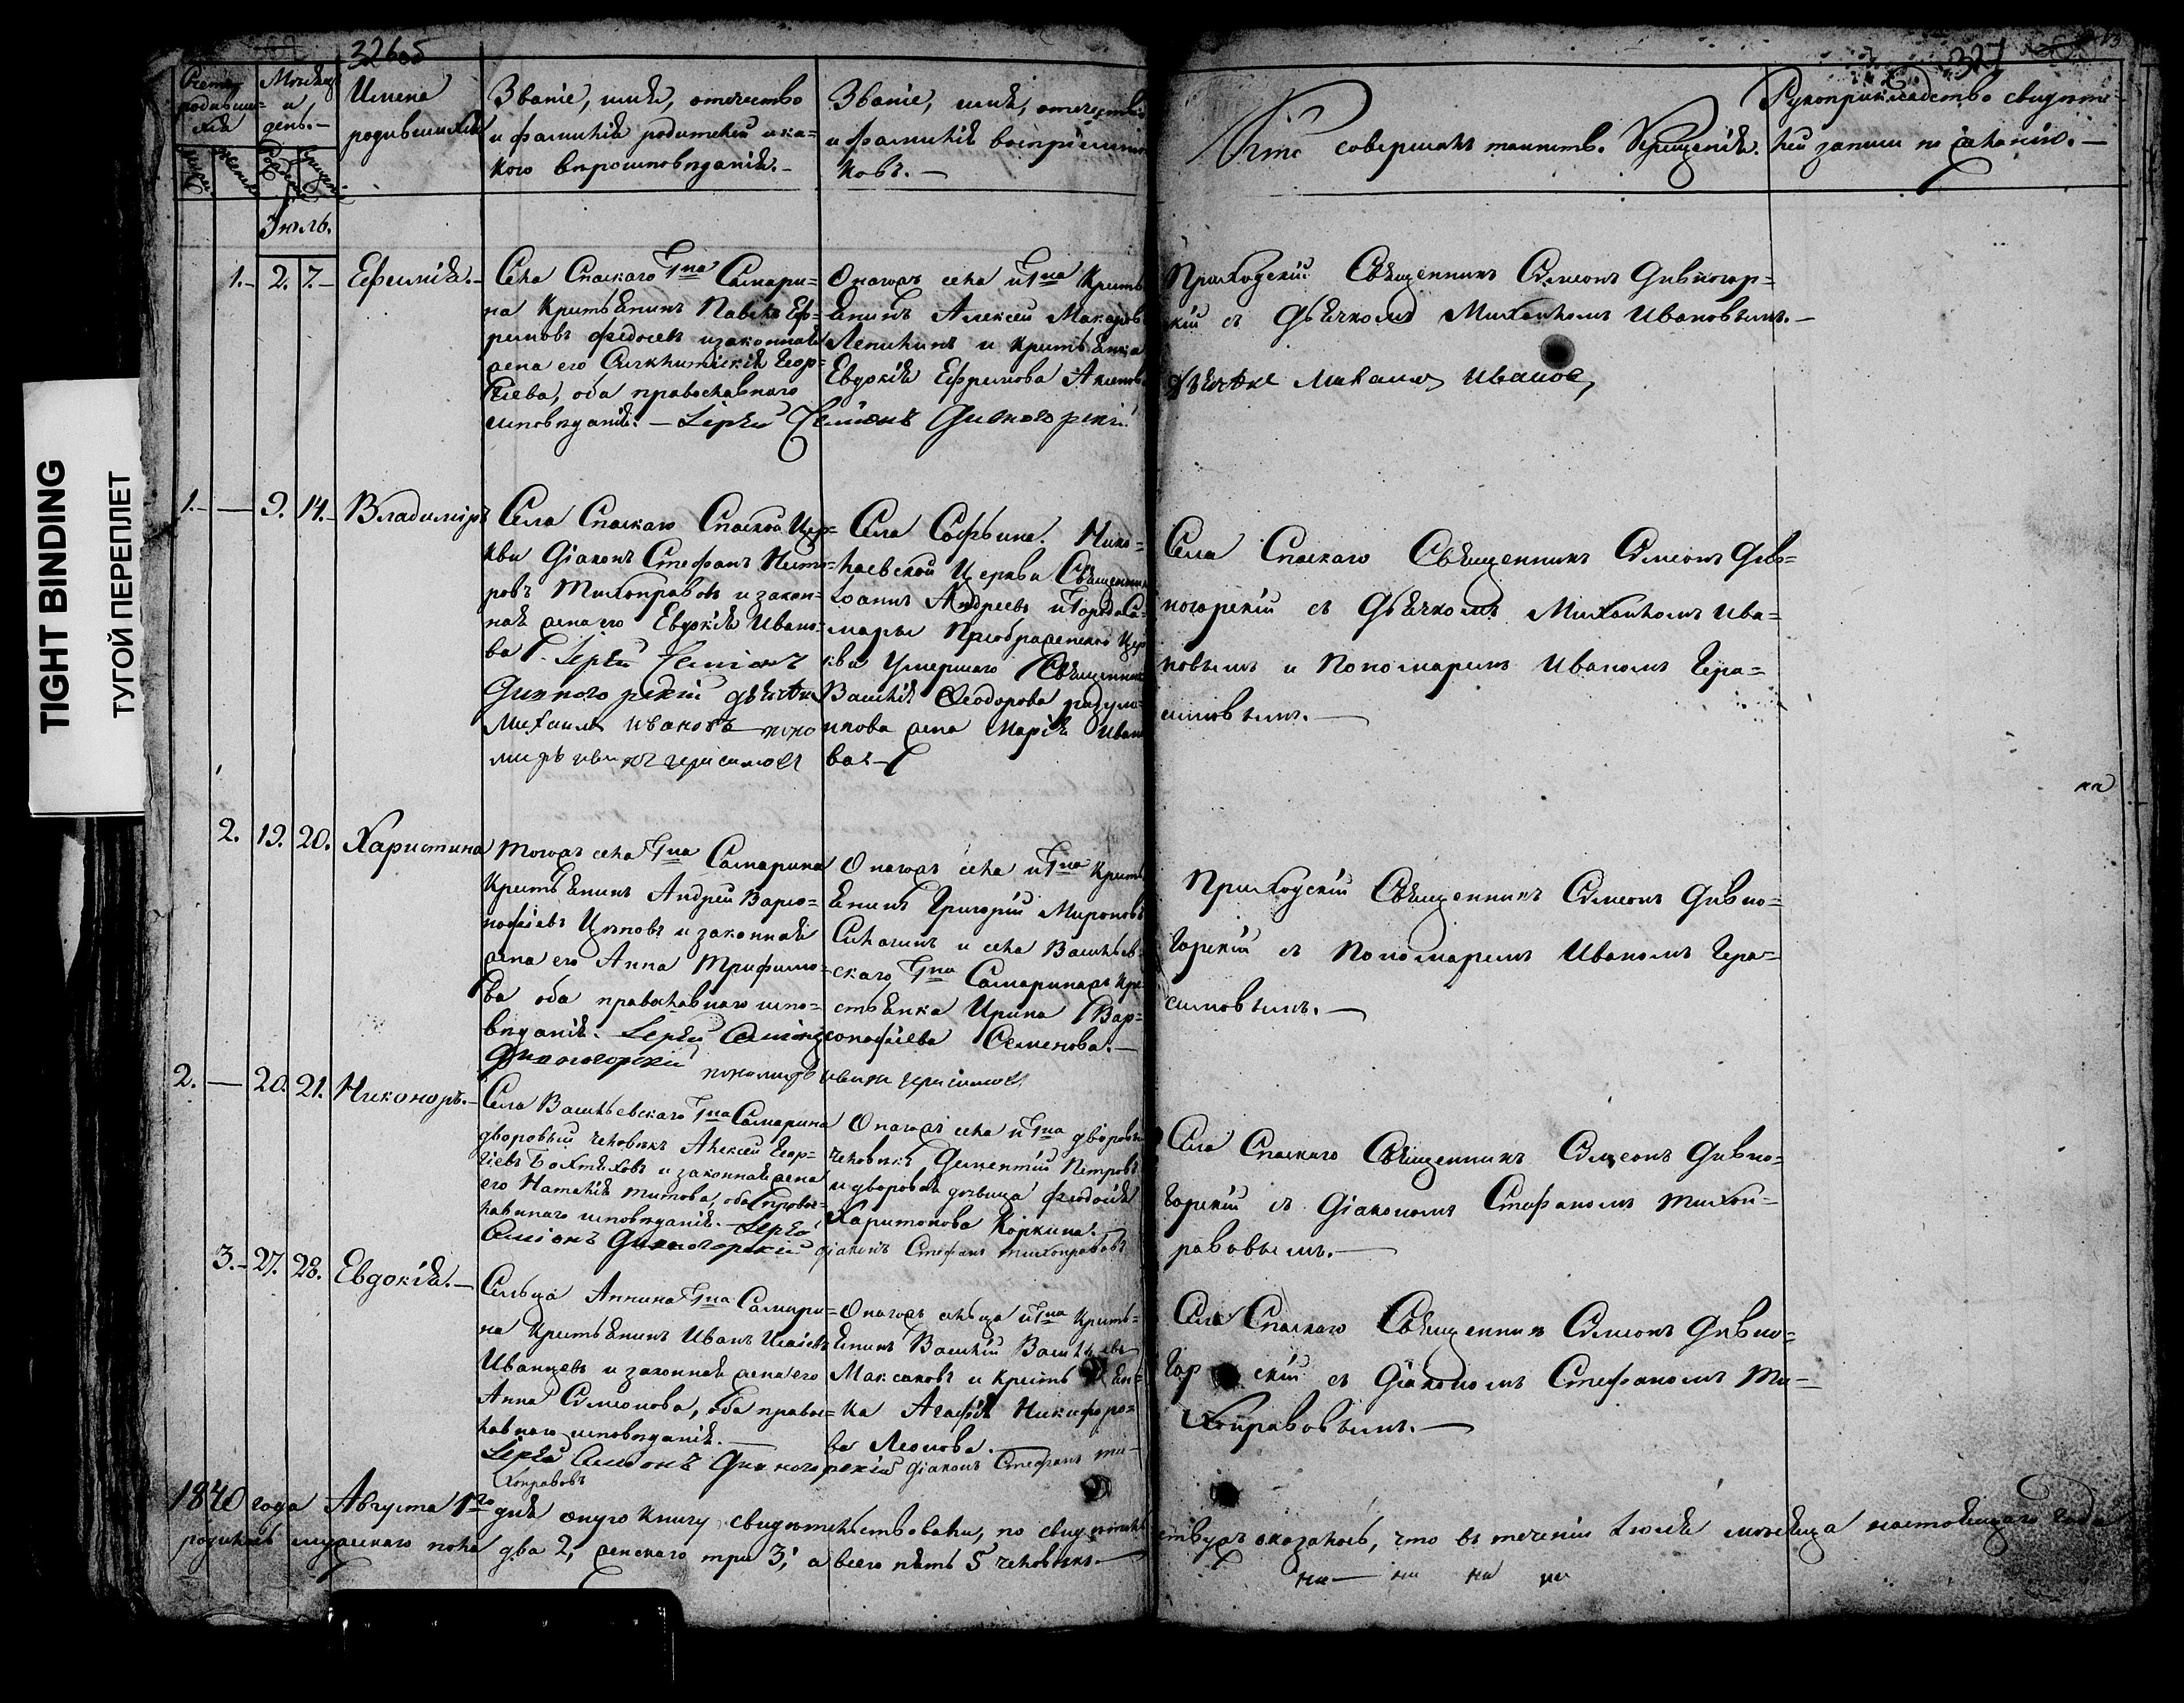 TIGHT BINDING
ТУГОЙ ПЕРЕПЛЕТ
326об
327
Счетъ родившихся
Мѣсяцъ и день.
Имена родившихся
Званіе, имя, отечество
и фамилія родителей и ка=
кого вѣроисповѣданія.
Званіе, имя, отечество
и фамилія воспріемни
ковъ.
Кто совершалъ таинство Крещенія.
Рукоприкладство свидѣте=
лей записи по желанію.
Іюль.
1. 2. 7. Ефимія.
Села Спаскаго Гна Самари=
на Крестьянинъ Павелъ Еф=
ремовъ Федосеевъ и законная
жена его Георг=
гіева, оба православнаго
исповѣданія. Іерей Симеонъ Дивногорскій
Онагожъ села и Гна Кресть
янинъ Алексей Макаров
Лепихинъ и крестьянка
Евдокія Ефремова
Приходскій Священникъ Симеонъ Дивногор=
скій съ Дьячкомъ Михаиломъ Ивановымъ.
Дьячекъ Михаилъ Иванов
1. — 9. 14. Владиміръ
Села Спаскаго Спаской Цер=
кви Діаконъ Стефанъ Нест=
ровъ Тихонравовъ и закон=
ная жена его Евдокія Ивано=
ва. Іерей Симіонъ
Дивногорскій дьячекъ
Михаилъ Ивановъ поно
марь иванъ герасимовъ
Села Софьина Нико=
лаевской Церкви Священник
Іоаннъ Андреевъ и Города Са=
мары Преображенской Цер
кви умершаго Священник
Василія Феодорова Разумо=
ва жена Марія Ивано
ва.
Села Спаскаго Священникъ Симеонъ Див=
ногорскій съ Дьячкомъ Михаиломъ Ива=
новымъ и Пономаремъ Иваномъ Гера=
симовымъ.
на
2. 19. 20. Харистина
Тогожъ села Гна Самарина
Крестьянинъ Андрей Варсо=
нофіевъ Цеповъ и законная
жена его Анна Трифимо=
ва оба православнаго испо=
вѣданія. Іерей Симіонъ
Дивногорскій пономарь иванъ герасимовъ
Онагожъ села и Гна Кресть
янинъ Григорій Мироновъ
и села Васильев=
скаго Гна Самаринажъ Кре=
стьянка Ирина Вар=
сонофіева Семенова.
Приходскій Священникъ Симеонъ Дивно=
горскій съ Пономаремъ Иваномъ Гера=
симовымъ.
2. — 20. 21. Никоноръ.
Села Васильевскаго Гна Самарина
дворовый человѣкъ Алексей Геор=
гіевъ и законная жена
его Наталія Титова, оба право=
славнаго исповѣданія. Іерей
Симіонъ Дивногорскій діаконъ Стефанъ Тихонравовъ
Онагожъ села и Гна дворовы
человѣкъ Дементій Петровъ
и дворовая дѣвица Феодосія
Харитонова Коркина.
Села Спаскаго Священникъ Симеонъ Дивно=
горскій съ Діакономъ Стефаномъ Тихон=
равовымъ.
3. 27. 28. Евдокія.
Сельца Аннина Гна Самари=
на Крестьянинъ Иванъ Исаіевъ
Иванцевъ и законная жена его
Анна Симеонова, оба право=
славнаго исповѣданія.
Іерей Симіонъ Дивногорскій діаконъ Стефанъ Ти
хонравовъ
Онагожъ сельца и Гна Кресть=
янинъ Василій Васильевъ
Максаковъ и Крестьян=
ка Агафія Никифоро=
ва Леонова.
Села Спаскаго Священникъ Симеонъ Дивно=
горскій съ Діакономъ Стефаномъ Ти=
хонравовымъ.
1840 года Августа 1го дня оную книгу свидѣтельствовали, по свидѣтельствужъ оказалось, что въ теченіи Іюля мѣсяца настоящаго года
родилось мужескаго пола два 2, женскаго три 3, а всего пять 5 человѣкъ.
на на на на